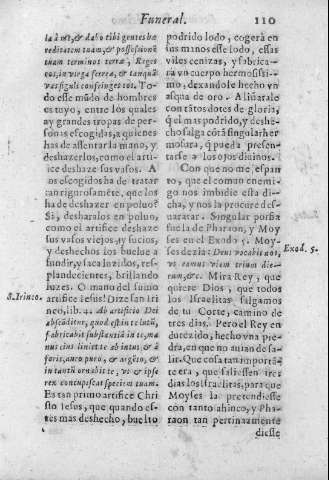 Funeral.
110
la à me, & dabo tibi gentes hæ
reditatem tuam, & possessionē
tuam terminos terræ, Reges
eos, in virga ferrea, & tanquā
vas figuli confringes eos. To
do esse mūdo de hombres
es tuyo, entre los quales
ay grandes tropas de per-
sonas escogidas, a quienes
has de assentar la mano, y
deshazerlos, como el arti-
ice deshaze sus vasos. A
os escogidos ha de tratar
tan rigurosamēte, que los
ha de deshazer en poluo?
Si, desharalos en poluo,
como el artifice deshaze
sus vasos viejos, y sucios,
y deshechos los buelue a
fundir, y saca luzidos, res-
plandecientes, brillando
luzes. O mano del sumo
artifice Iesus! Dize san Iri
neo, lib. 4. Ab artificio Dei
abscōditur, quod est in te lutū,
fabricabit substantiā in te, ma
nus eius liniet te ab intus, &
foris, auro puro, & argēto, &
in tantū ornabit te, vt & ipse
rex concupiscat speciem tuam.
Es tan primo artifice Chri
sto Iesus, que quando es-
tès mas deshecho, buelto
S. Irineo.
podrido lodo, cogerà en
sus manos esse lodo, essas
viles cenizas, y fabrica-
rà vn cuerpo hermosissi-
mo, dexandole hecho vn
asqua de oro. Aliñarale
con tātos dotes de gloria,
q̄ el mas podrido, y deshe
cho salga cō tā singular her
mosura, q̄ pueda presen-
tarse a los ojos diuinos.
Con que no me espan
to, que el comun enemi-
go nos imbidie essa di-
cha, y nos la procure des-
baratar. Singular porfia
fue la de Pharaon, y Moy
ses en el Exodo 5. Moy-
ses dezia: Deus vocabit nos,
vt eamus viam trium die-
rum, &c. Mira Rey, que
quiere Dios, que todos
los Israelitas salgamos
de tu Corte, camino de
tres dias. Pero el Rey en
durezido, hecho vna pie
dra, en que no auian de sa-
lir. Que cosa tan importā-
te era, que saliessen tres
dias los Israelitas, para que
Moyses la pretendiesse
con tanto ahinco, y Pha-
raon tan pertinazmente
diesse
Exod. 5.